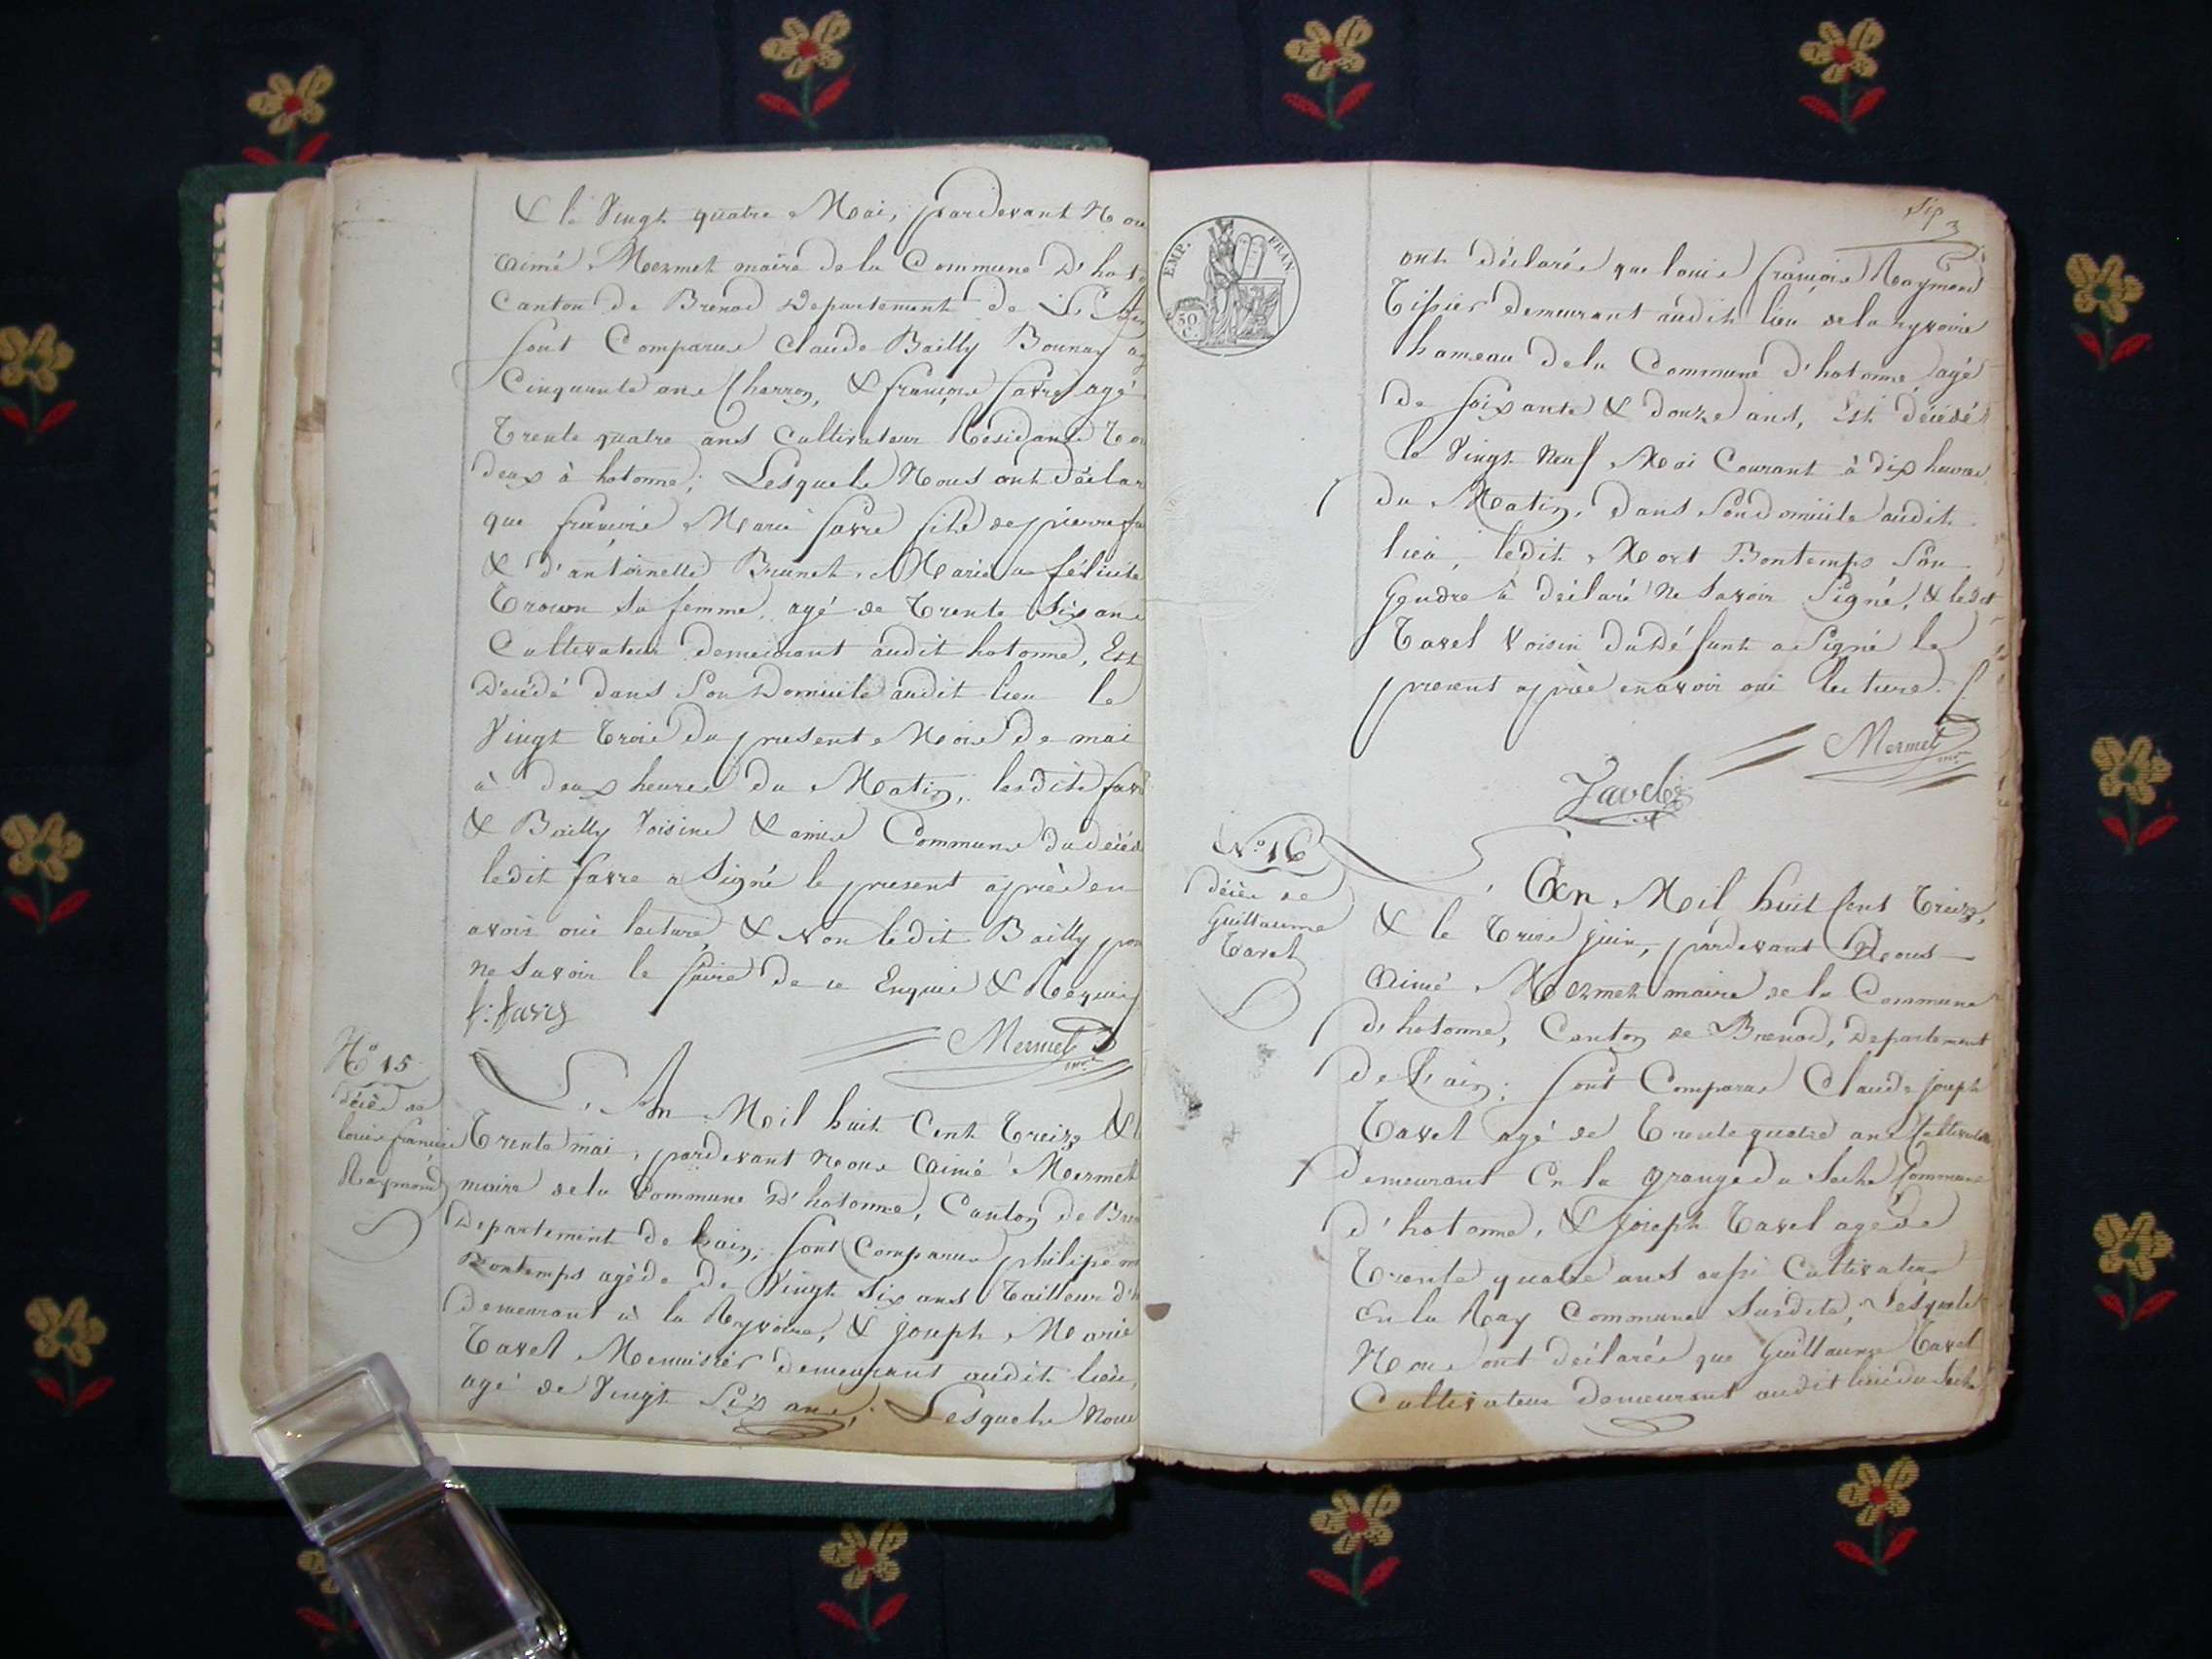 & le Vingt quatre Mai, pardevant Nou
aimé Mermet maire de la Commune D'hoto
Canton de Brenod Departement de L'Ain
sont Comparus Claude Bailly Bounay ag
Cinquante ans Charron, & françois favre agé
Trente quatre ans Cultivateur Residants Tou
deux à hotonne; Lesquels Nous ont déclar
que françois Marie favre fils de pierre fa
& d'antoinette Brunet, Marié a félicité
sa femme, agé de Trente Six ans
Cultivateur demeurant audit hotonne, Est
Décédé dans Son Domicile audit lieu le
Vingt Trois du present Mois de mai
à deux heures du Matin, lesdits fav
& Bailly Voisins & amis Communs du décéd
ledit favre a Signé le present après en
avoir oui lecture & Non ledit Bailly pou
ne Savoir le faire de ce Enquis & Requis
f: favre
Mermet mre
N° 15
décès de
louis françois
Raymond
L'An Mil huit Cent Treize & l
Trente mai, pardevant Nous aimé Mermet
maire de la Commune D'hotonne, Canton de Bre
Departement de L'ain, sont Comparus philipe
Bontemps agé de de Vingt Six ans Tailleur d'h
demeurant à la Ryvoire, & joseph Marie
Tavel Menuisier demeurant audit lieu,
agé de Vingt Six ans; Lesquels Nous
EMP. FRAN
50
C.
Sip 3
ont déclarés que louis françois Raymond
Tissier demeurant audit lieu de la ryvoire
hameau de la Commune d'hotonne, agé
de soixante & douze ans, Est décédé
le Vingt Neuf Mai Courant à dix heures
du Matin, dans Son domicile audit
lieu, ledit Bontemps Son
Gendre à déclaré Ne Savoir Signé, & ledit
Tavel Voisin du défunt a Signé le
present après en avoir oui lecture.
Mermet mre
Tavel
N° 16
décès de
Guillaume
Tavel
L'An Mil huit Cent Treize,
& le Trois juin, pardevant Nous
aimé Mermet maire de la Commune
d'hotonne, Canton de Brenod, Departement
De L'ain; sont Comparus Claude joseph
Tavel agé de Trente quatre ans Cultivateur
demeurant En la grange du Commune
d'hotonne, & joseph Tavel agé de
Trente quatre ans aussi Cultivateur
En la Ray Commune Susdite, Lesquels
Nous ont déclarés que Guillaume Tavel
Cultivateur demeurant audit lieu du